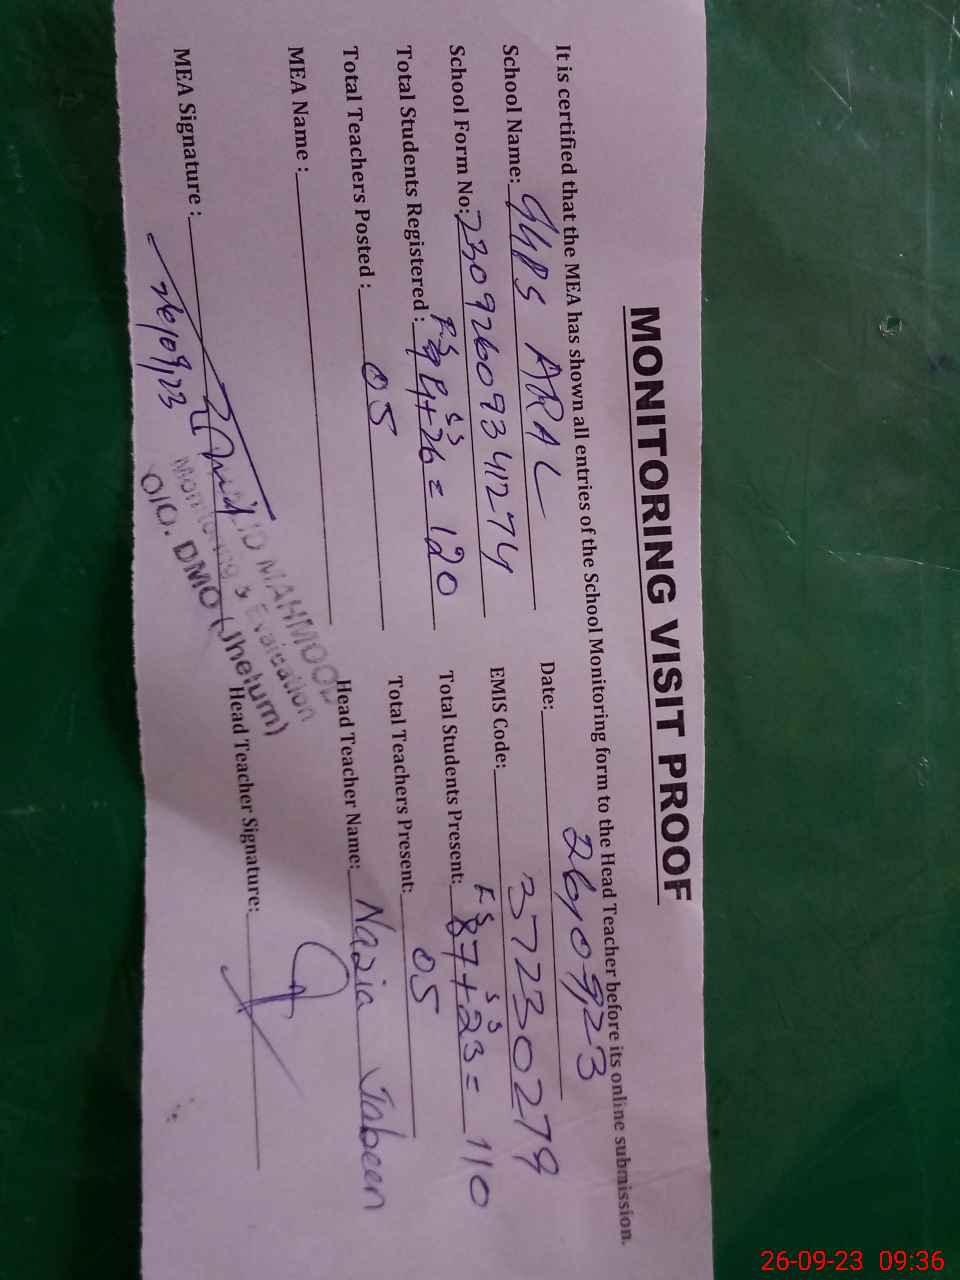 MONITORING VISIT PROOF
It is certified that the MEA has shown all entries of the School Monitoring form to the Head Teacher before its online submission.
School Name: GGPS ARAL Date: 26/09/23
School Form No: 23092609341274 EMIS Code: 37230279
Total Students Registered: FS 94+ SS 26 = 120 Total Students Present: FS 87+ SS 23 = 110
Total Teachers Posted: 05 Total Teachers Present: 05
MEA Name: Head Teacher Name: Nazia Jabeen
MEA Signature: Head Teacher Signature:
26/09/23
MAHMOOD
Monitoring & Evaluation
O/O. DMO (Jhelum)
26-09-23 09:36